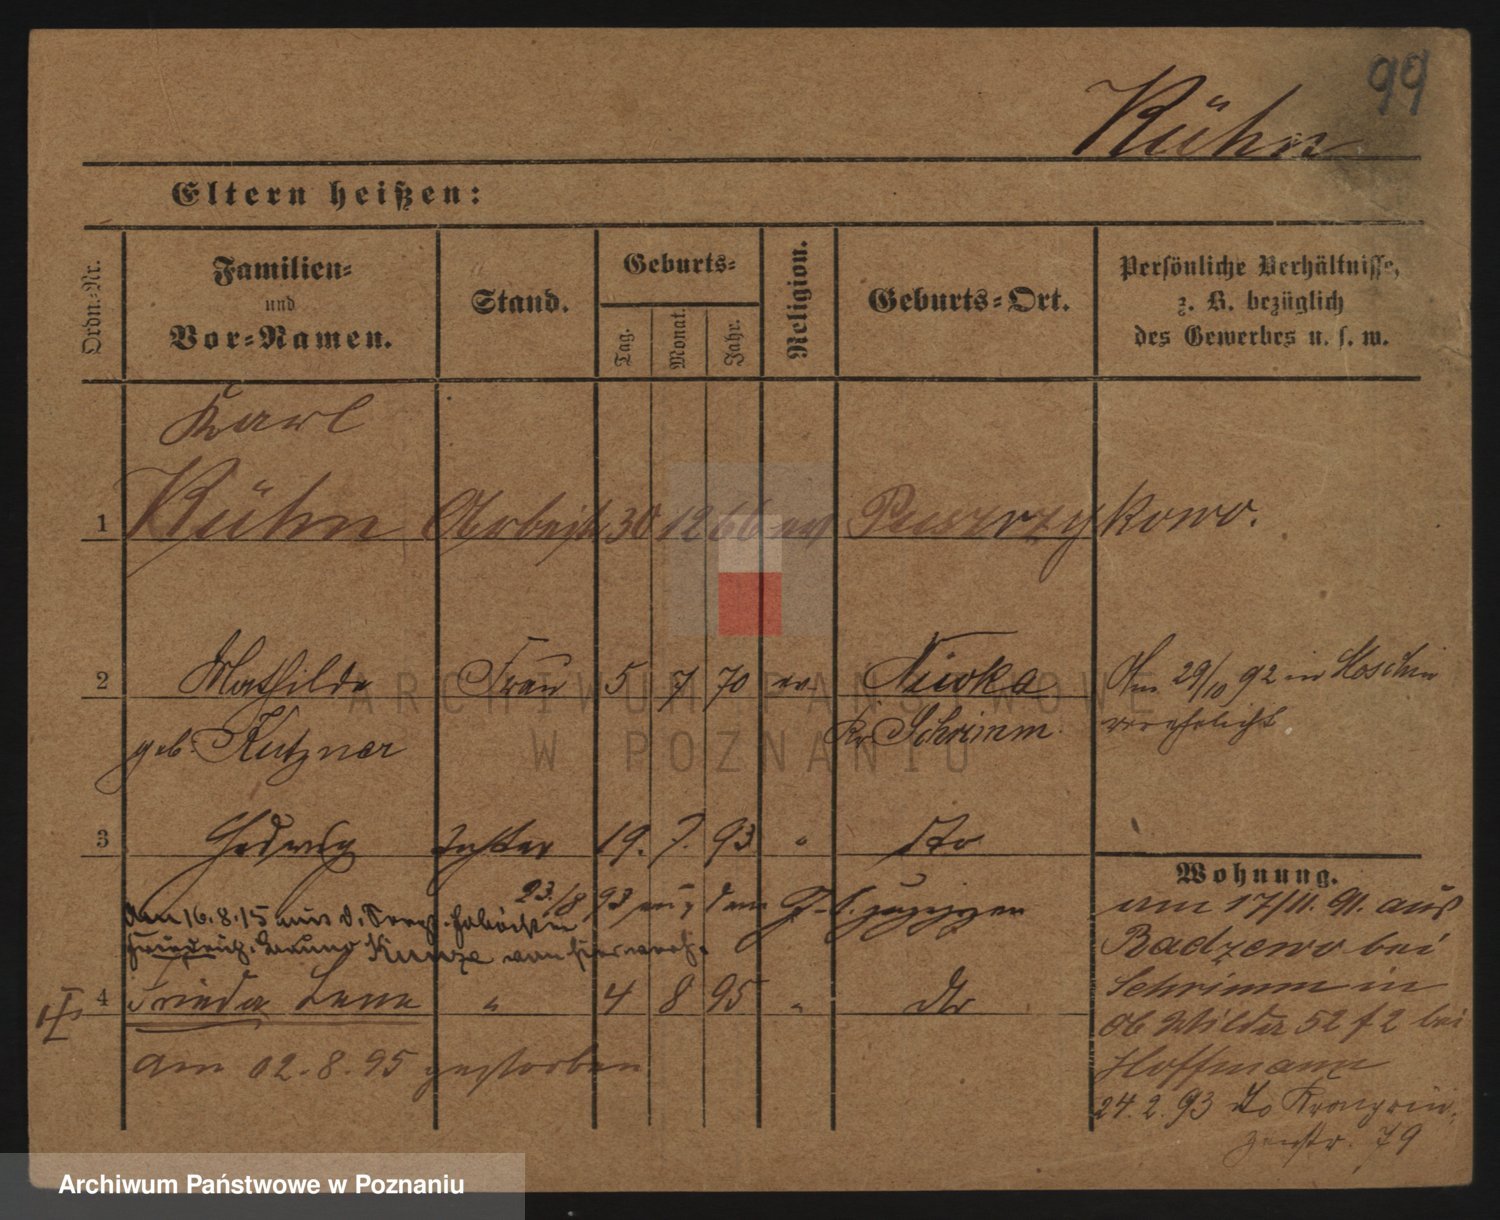 99
Kühn
Eltern heißen:
Ordn.-Nr.
Familien-
und
Vor-Namen.
Stand.
Geburts-
Tag.
Monat.
Jahr.
Religion.
Geburts-Ort.
Persönliche Verhältnisse,
z. B. bezüglich
des Gewerbes u. s. w.
Karl
1 Kühn Arbeiter 30 12 66 ev Puszczykowo.
2 Mathilde Frau 5 7 70 ev. Niwka Am 29/10 92 in Moschin
geb. Kutzner Kr. Schrimm verehelicht
3 Hedwig Tochter 19. 7. 93 " dto
23./8 93
Am 16.8.15 mit d.
Friedrich Bruno Kunze von hier verh.
4 Frieda Lene " 4 8 95 " dto
am 02.8.95 gestorben
Wohnung.
am 17/11. 91. aus
Radzewo bei
Schrimm in
Ob Wilda 52 f 2 bei
Hoffmann
24.2.93 do Kronprin-
zenstr. 79
ARCHIWUM PAŃSTWOWE
W POZNANIU
Archiwum Państwowe w Poznaniu